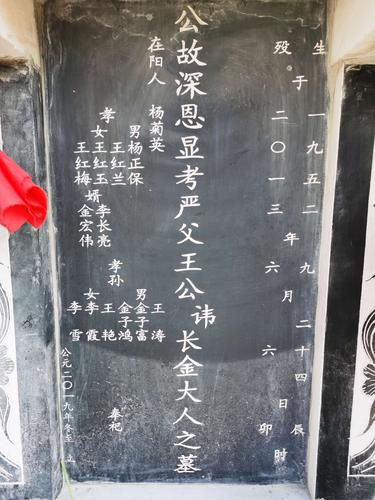 生一九五二九二十四辰
于年月日时
殁二〇一三六六卯
公故深恩显考严父王公讳长金大人之墓
在阳人 杨菊英
孝
男杨正保
王红兰
女王红玉
王红梅
婿
李长亮
金宏伟
孝孙
王涛
男金子富
金子鸿
王艳
女李霞
李雪
奉祀
公元二〇一九年冬至 立